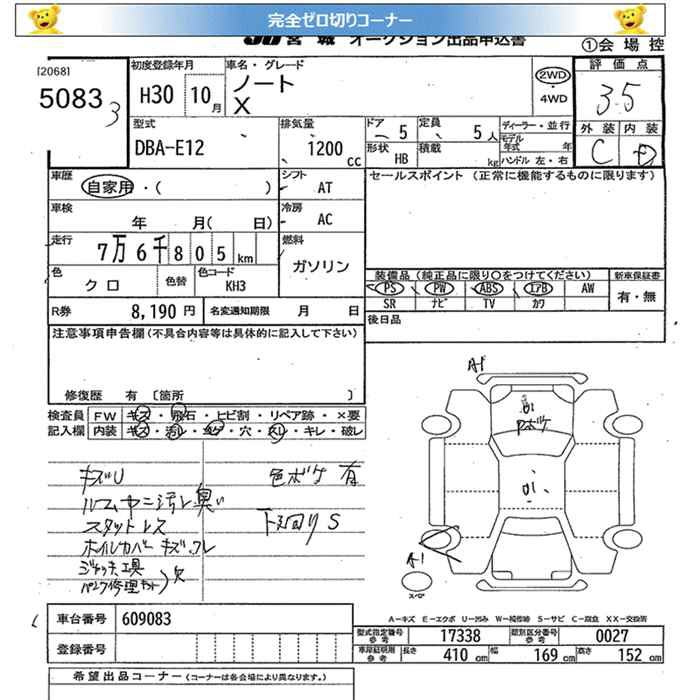 完全ゼロ切りコーナー
JU 宮城 オークション出品申込書
①会場控
[2068]
5083 3
初度登録年月
H30 10月
車名・グレード
ノート
X
2WD
・4WD
評価点
3.5
外装 内装
C D
型式
DBA-E12
排気量
1200 cc
ドア 5
定員 5人
形状 HB
積載 kg
ディーラー・並行
モデル年式 年
ハンドル 左・右
車歴
自家用・( )
シフト AT
セールスポイント (正常に機能するものに限ります)
車検 年 月( 日)
冷房 AC
走行
7万6千805km
燃料
ガソリン
色 クロ
色替
色コード KH3
装備品 (純正品に限り○をつけてください)
新車保証書
PS PW ABS エアB AW
SR ナビ TV カワ
有・無
R券 8,190円
名変通知期限 月 日
後日品
注意事項申告欄 (不具合内容等は具体的に記入して下さい)
修復歴 有 〔箇所 〕
検査員 FW キズ・飛石・ヒビ割・リペア跡・×要
記入欄 内装 キズ・汚レ・コゲ・穴・スレ・キレ・破レ
キズU
色ボケ 有
ルームヤニ汚レ臭い
スタットレス
下回りS
ホイルカバー キズ.ワレ
ジャッキ工具
パンク修理キット 欠
A1
ボケ
A1
スペア
車台番号 609083
登録番号
A-キズ E-エクボ U-凹み W-補修跡 S-サビ C-腐食 XX-交換済
型式指定番号 参考 17338
類別区分番号 参考 0027
車庫証明用 参考 長さ 410cm 幅 169cm 高さ 152cm
希望出品コーナー (コーナーは各会場により異なります。)